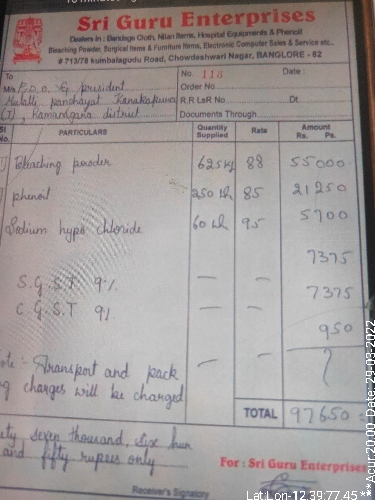 Sri Guru Enterprises
Dealers in : Bandage Cloth, Nilan Items, Hospital Equipments & Phenoil
Bleaching Powder, Surgical Items & Furniture Items, Electronic Computer Sales & Service etc..
# 713/78 kumbalagudu Road, Chowdeshwari Nagar, BANGLORE - 62
To No. 118 Date :
M/s P.D.O. & president Order No
panchayat Kanakapura R.R LaR No Dt
(T), Ramanagara district Documents Through
Sl No PARTICULARS Quantity Supplied Rate Amount Rs. Ps.
Bleaching powder 625kg 88 55000
phenoil 250 85 21250
Sodium hypo chloride 60 95 5700
7375
S.G.S.T 9% — — 7375
C.G.S.T 9% — —
950
ote :- Transport and pack — —
g charges will be charged
TOTAL 97650 =
ty seven thousand, Six hun
and fifty rupees only
For : Sri Guru Enterprises
Receiver's Signatory
Lat:Lon-12.39:77.45***Acur 20.00 Date: 29-03-2022